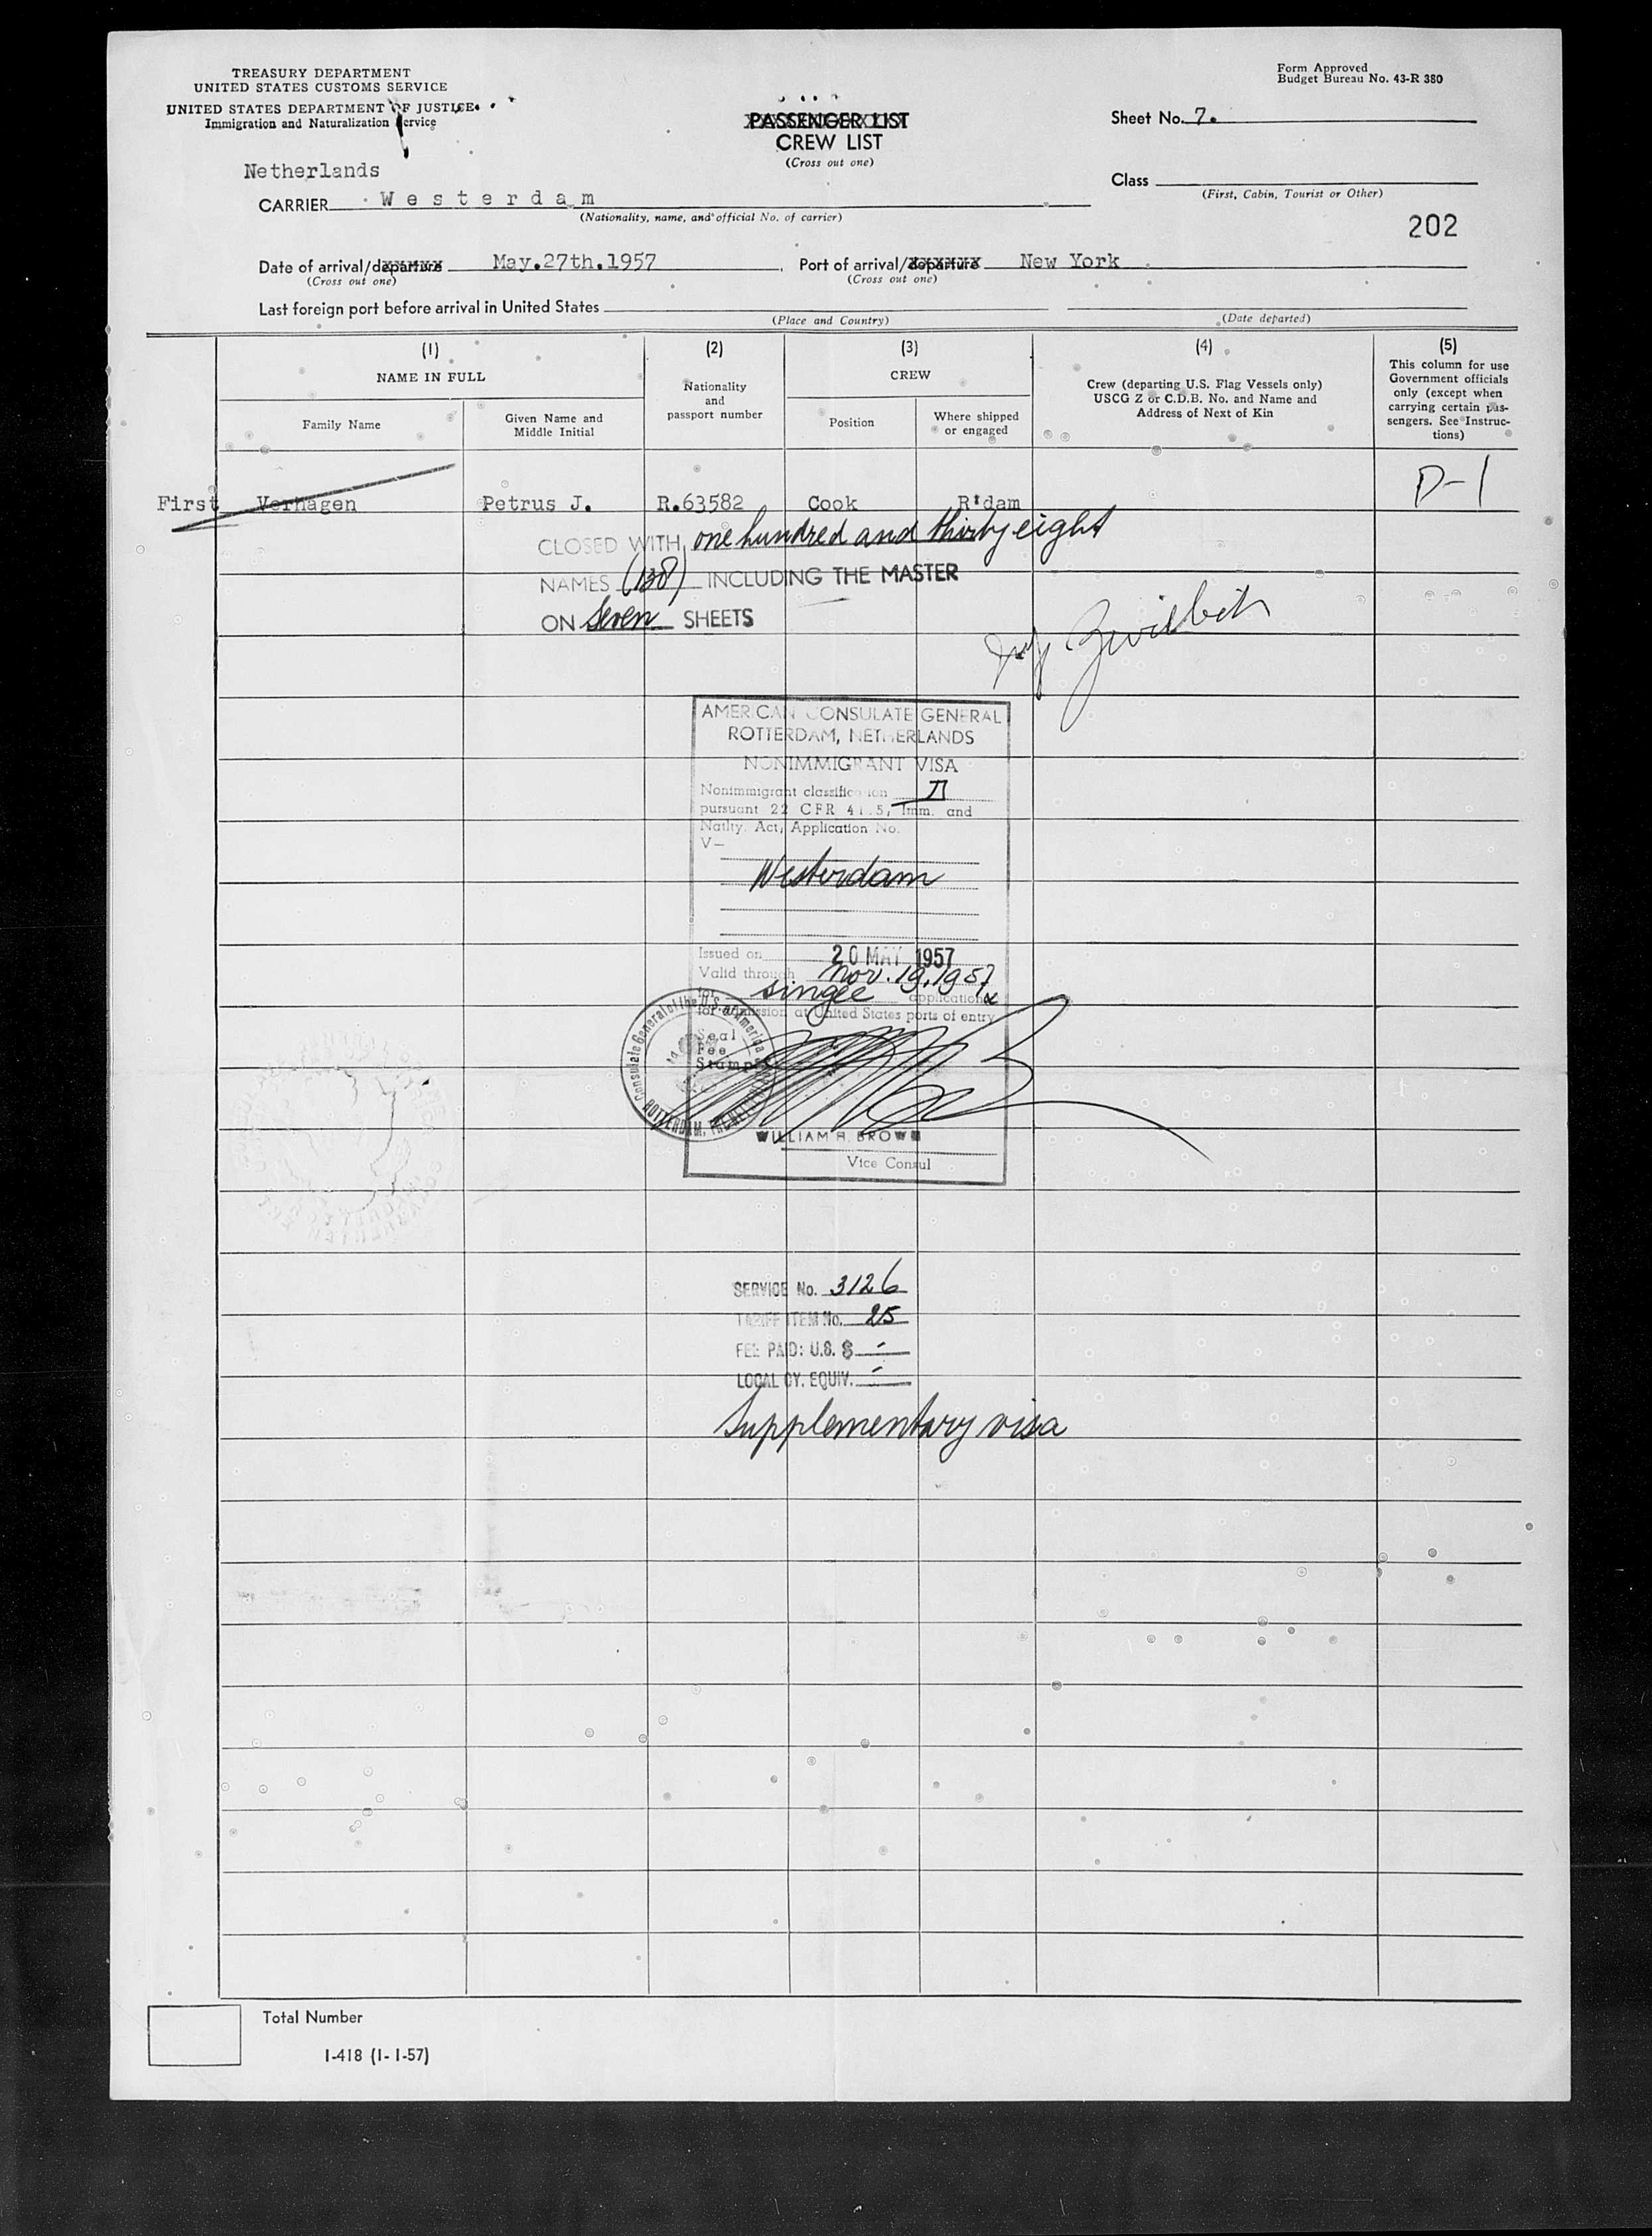 TREASURY DEPARTMENT
UNITED STATES CUSTOMS SERVICE
UNITED STATES DEPARTMENT OF JUSTICE
Immigration and Naturalization Service
Form Approved
Budget Bureau No. 43-R 380
PASSENGER LIST
CREW LIST
(Cross out one)
Sheet No. 7.
Netherlands
CARRIER Westerdam
(Nationality, name, and official No. of carrier)
Class
(First, Cabin, Tourist or Other)
202
Date of arrival/departure May.27th.1957 Port of arrival/departure New York
(Cross out one) (Cross out one)
Last foreign port before arrival in United States
(Place and Country) (Date departed)
(1) (2) (3) (4) (5)
NAME IN FULL
Family Name
Given Name and
Middle Initial
Nationality
and
passport number
CREW
Position
Where shipped
or engaged
Crew (departing U.S. Flag Vessels only)
USCG Z or C.D.B. No. and Name and
Address of Next of Kin
This column for use
Government officials
only (except when
carrying certain pas-
sengers. See Instruc-
tions)
First Verhagen Petrus J. R.63582 Cook R'dam D-1
CLOSED WITH one hundred and thirty eight
NAMES (138) INCLUDING THE MASTER
ON seven SHEETS
AMERICAN CONSULATE GENERAL
ROTTERDAM, NETHERLANDS
NONIMMIGRANT VISA
Nonimmigrant classification D
pursuant 22 CFR 41.5, Imm. and
Natlty. Act, Application No.
V—
Westerdam
Issued on 20 MAY 1957
Valid through Nov. 19, 1957
for single application
for admission at United States ports of entry
Seal
Fee
Stamps
Consulate General of the U.S. of America
ROTTERDAM,
WILLIAM H. BROWN
Vice Consul
SERVICE No. 3126
TARIFF ITEM No. 25
FEE PAID: U.S. $ -
LOCAL CY. EQUIV. -
Supplementary visa
Total Number
I-418 (1-1-57)